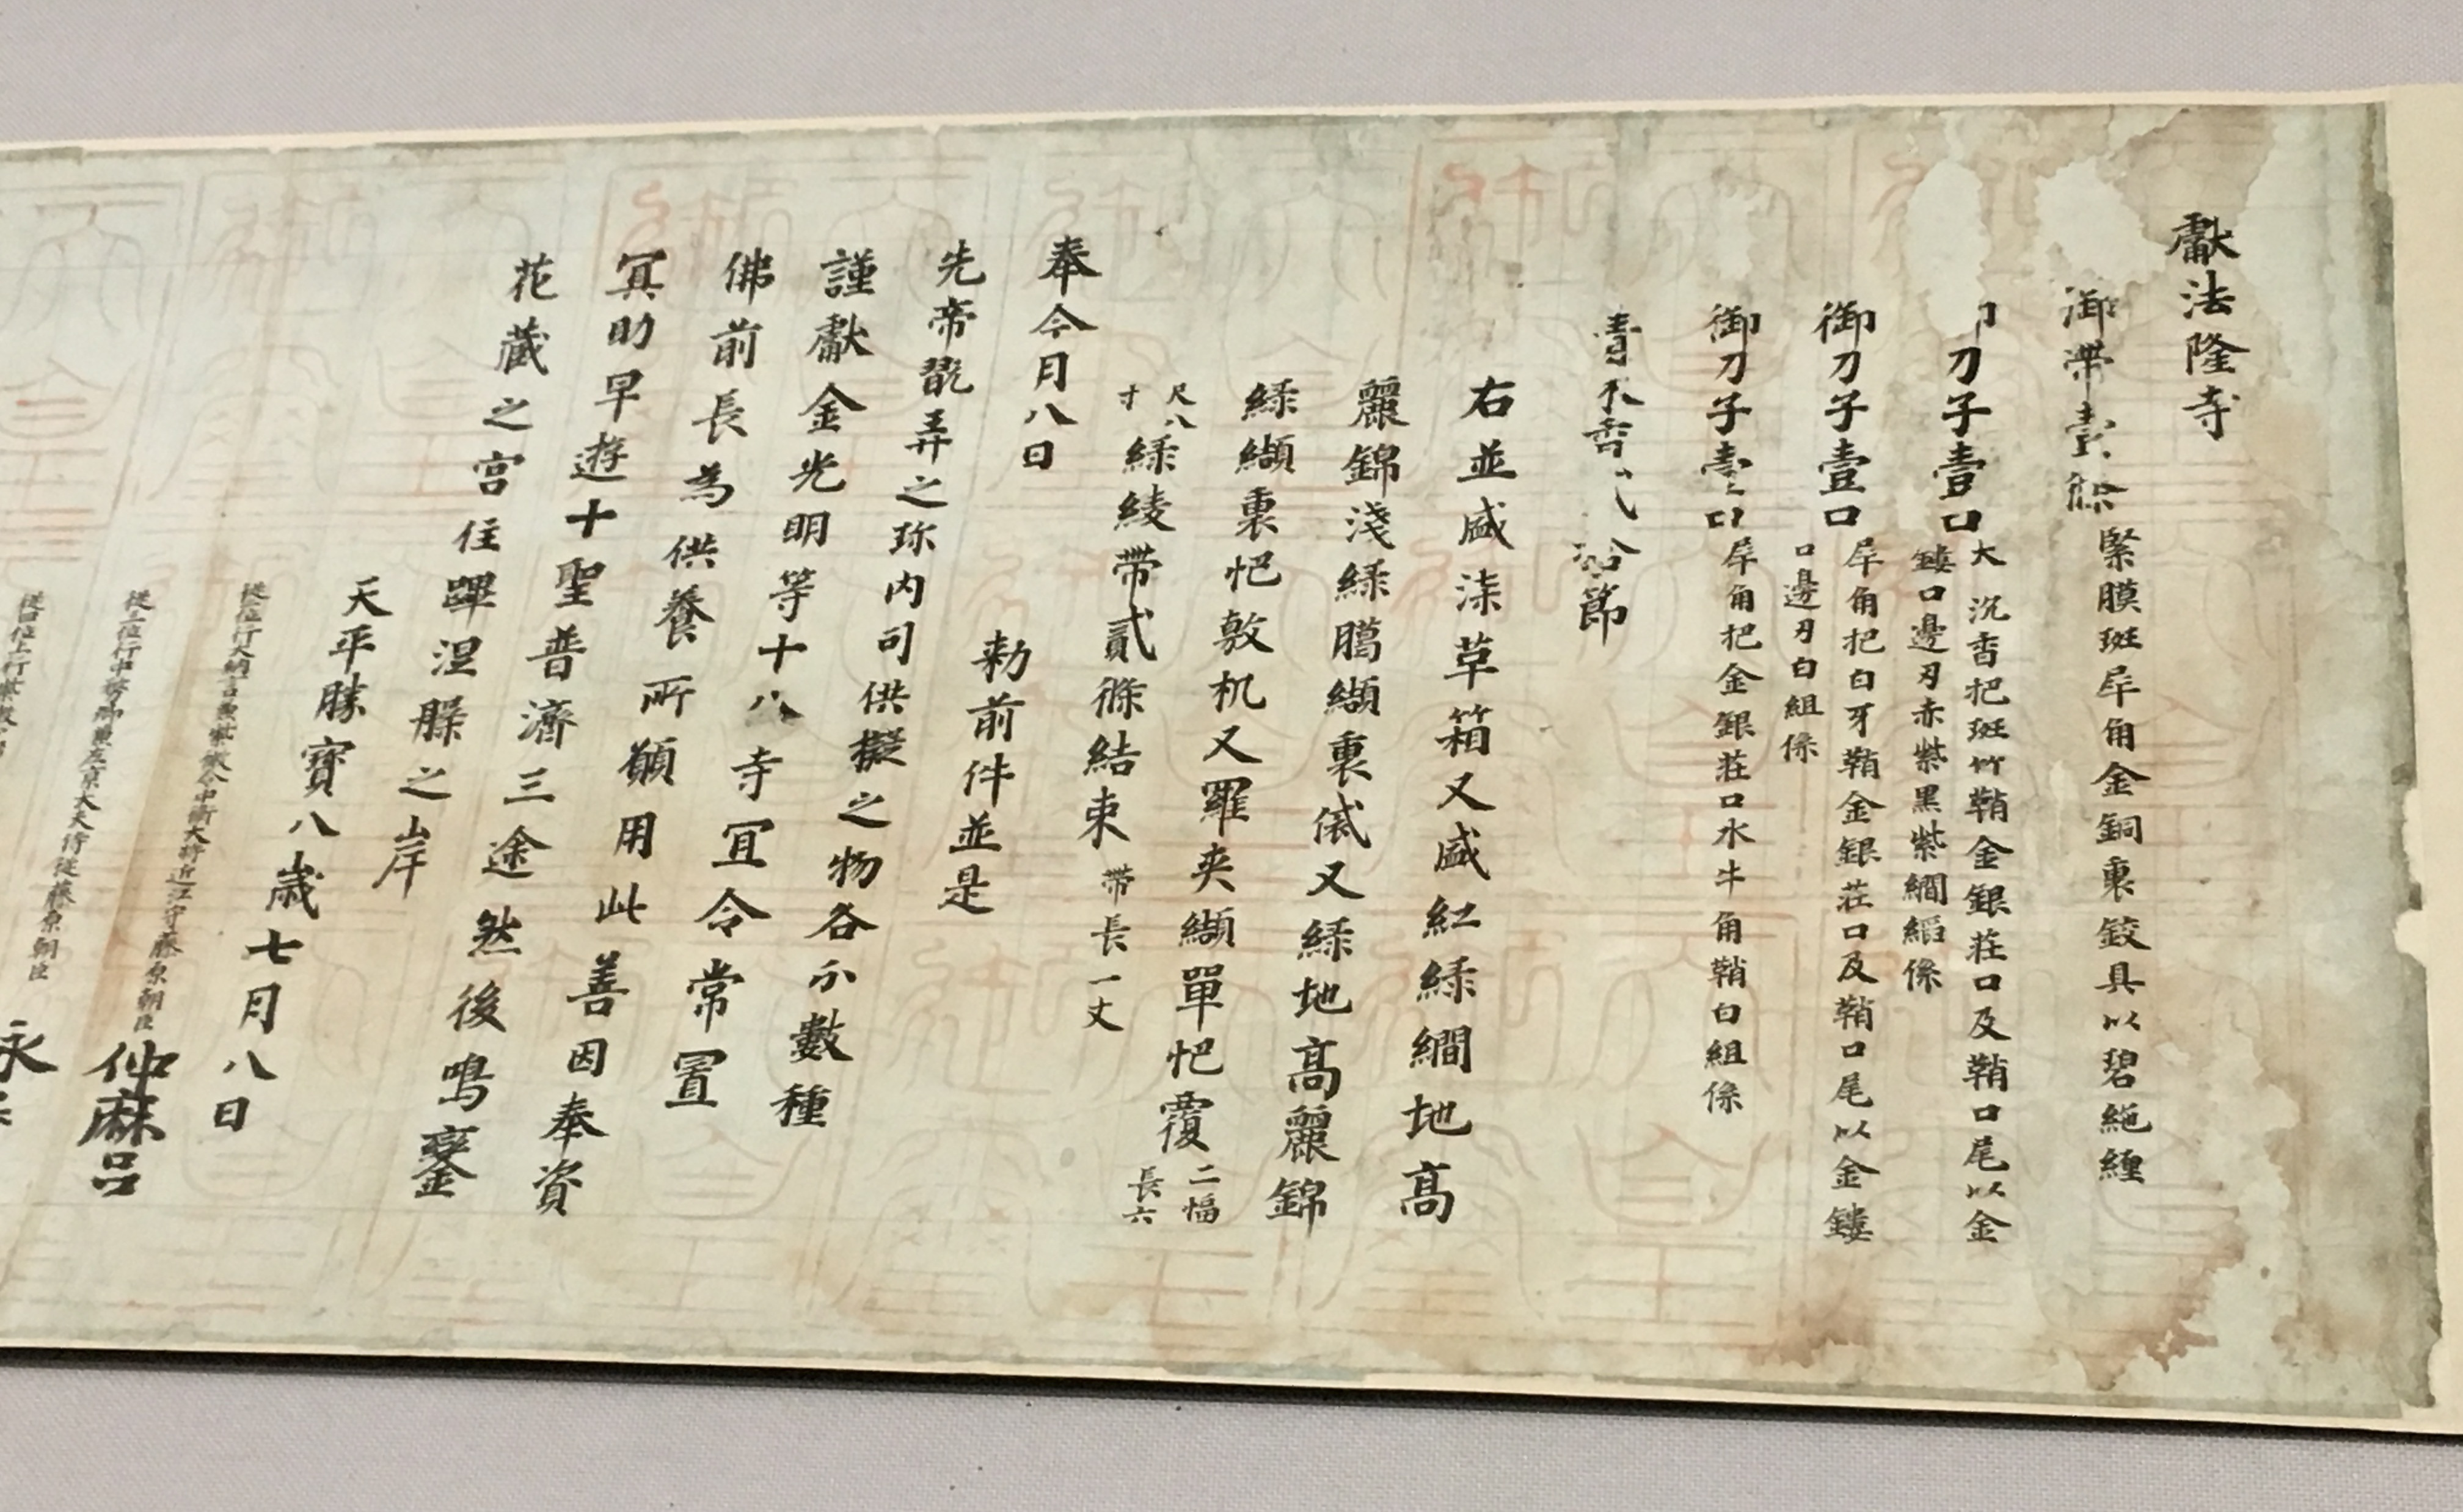 獻法隆寺
御帶壹條 緊膜斑犀角金銅裏鉸具以碧絁纏
刀子壹口 大沉香把斑竹鞘金銀莊口及鞘口尾以金
鏤口邊刃赤紫黑紫繝縚絛
御刀子壹口 犀角把白牙鞘金銀莊口及鞘口尾以金鏤
口邊刃白組絛
御刀子壹口 犀角把金銀莊口水牛角鞘白組絛
青木香貳拾節
右並盛柒草箱又盛紅綠繝地高
麗錦淺綠臈纈裏帒又綠地高麗錦
綠纈裏帊敷机又羅夾纈單帊覆 二幅
長六
尺八
寸 綠綾帶貳條結束 帶長一丈
奉今月八日
勅前件並是
先帝翫弄之珎内司供擬之物各分數種
謹獻金光明等十八寺宜令常置
佛前長為供養所願用此善因奉資
冥助早遊十聖普濟三途然後鳴鑾
花藏之宮住蹕涅槃之岸
天平勝寶八歲七月八日
從二位行大納言兼紫微令中衛大將近江守藤原朝臣 仲麻呂
從三位行中務卿兼左京大夫侍從藤原朝臣 永